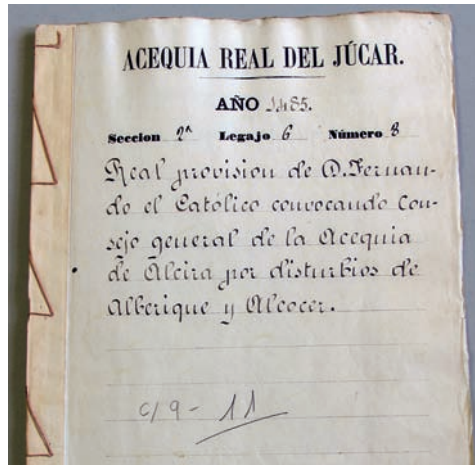 ACEQUIA REAL DEL JÚCAR.
AÑO 1485.
Seccion 2ª Legajo 6 Número 8
Real provision de D. Fernan-
do el Católico convocando Con-
sejo general de la Acequia
de Alcira por disturbios de
Alberique y Alcocer.
c/9-11